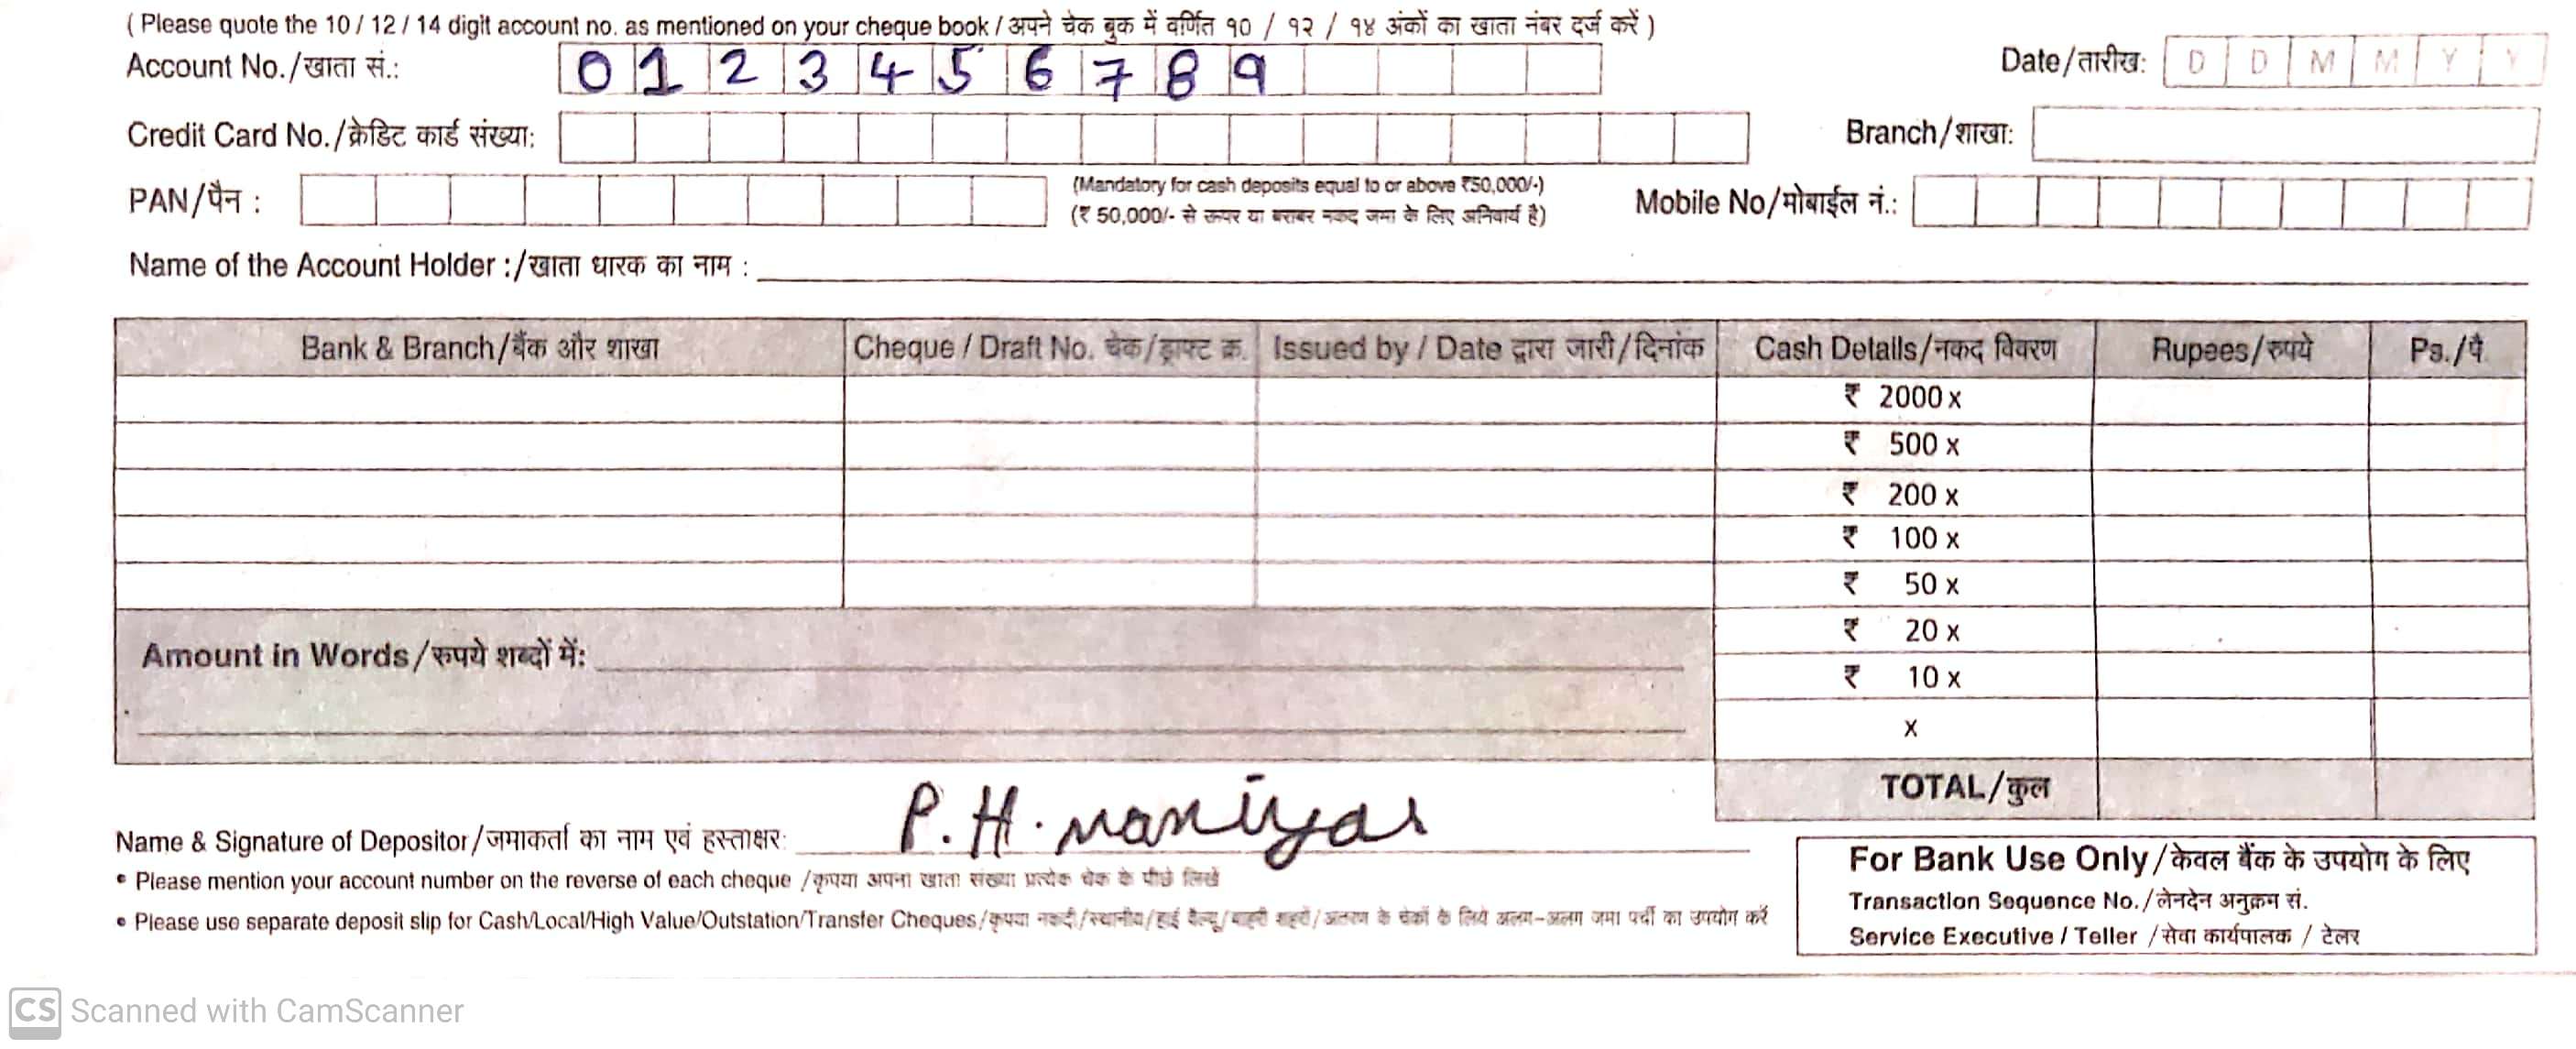 ( Please quote the 10 / 12 / 14 digit account no. as mentioned on your cheque book / अपने चेक बुक में वर्णित १० / १२ / १४ अंकों का खाता नंबर दर्ज करें )
Account No./खाता सं.: 0 1 2 3 4 5 6 7 8 9
Date/तारीख: D D M M Y Y
Credit Card No./क्रेडिट कार्ड संख्या:
Branch/शाखा:
PAN/पैन :
(Mandatory for cash deposits equal to or above ₹50,000/-)
(₹ 50,000/- से ऊपर या बराबर नकद जमा के लिए अनिवार्य है)
Mobile No/मोबाईल नं.:
Name of the Account Holder :/खाता धारक का नाम :
Bank & Branch/बैंक और शाखा Cheque / Draft No. चेक/ड्राफ्ट क्र. Issued by / Date द्वारा जारी/दिनांक Cash Details/नकद विवरण Rupees/रुपये Ps./पै
₹ 2000 x
₹ 500 x
₹ 200 x
₹ 100 x
₹ 50 x
₹ 20 x
₹ 10 x
x
Amount in Words/रुपये शब्दों में:
TOTAL/कुल
Name & Signature of Depositor/जमाकर्ता का नाम एवं हस्ताक्षर: P.H. maniyar
• Please mention your account number on the reverse of each cheque /कृपया अपना खाता संख्या प्रत्येक चेक के पीछे लिखें
• Please use separate deposit slip for Cash/Local/High Value/Outstation/Transfer Cheques/कृपया नकदी/स्थानीय/हाई वैल्यू/बाहरी शहरों/अंतरण के चेकों के लिये अलग-अलग जमा पर्ची का उपयोग करें
For Bank Use Only/केवल बैंक के उपयोग के लिए
Transaction Sequence No./लेनदेन अनुक्रम सं.
Service Executive / Teller /सेवा कार्यपालक / टेलर
CS Scanned with CamScanner